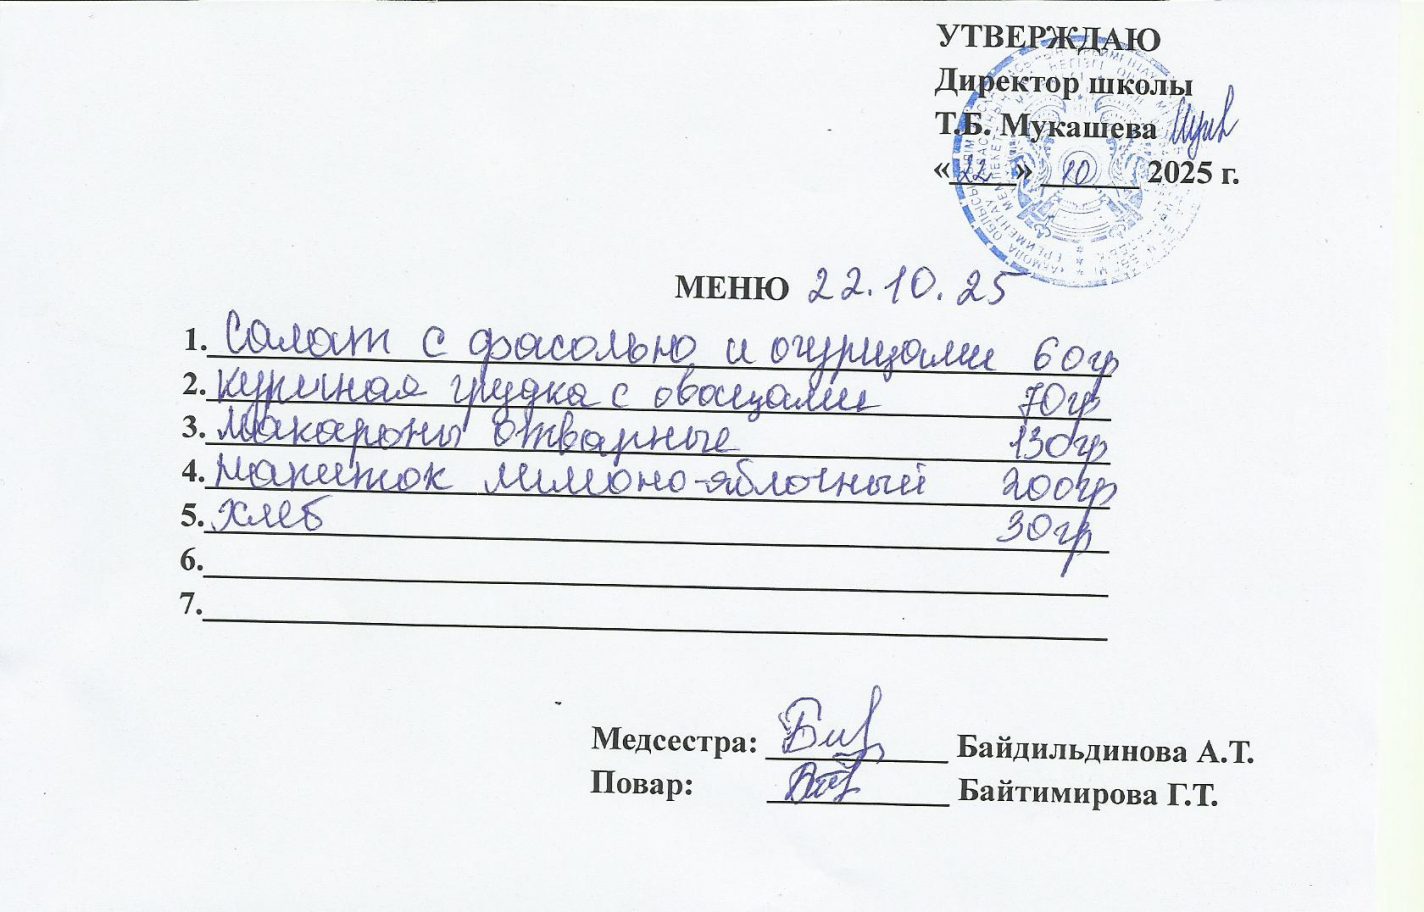 УТВЕРЖДАЮ
Директор школы
Т.Б. Мукашева
«22» 10 2025 г.
МЕНЮ 22.10.25
1. Салат с фасолью и огурцами 60гр
2. куриная грудка с овощами 70гр
3. Макароны отварные 130гр
4. Напиток лимоно-яблочный 200гр
5. хлеб 30гр
6.
7.
Медсестра: Байдильдинова А.Т.
Повар: Байтимирова Г.Т.